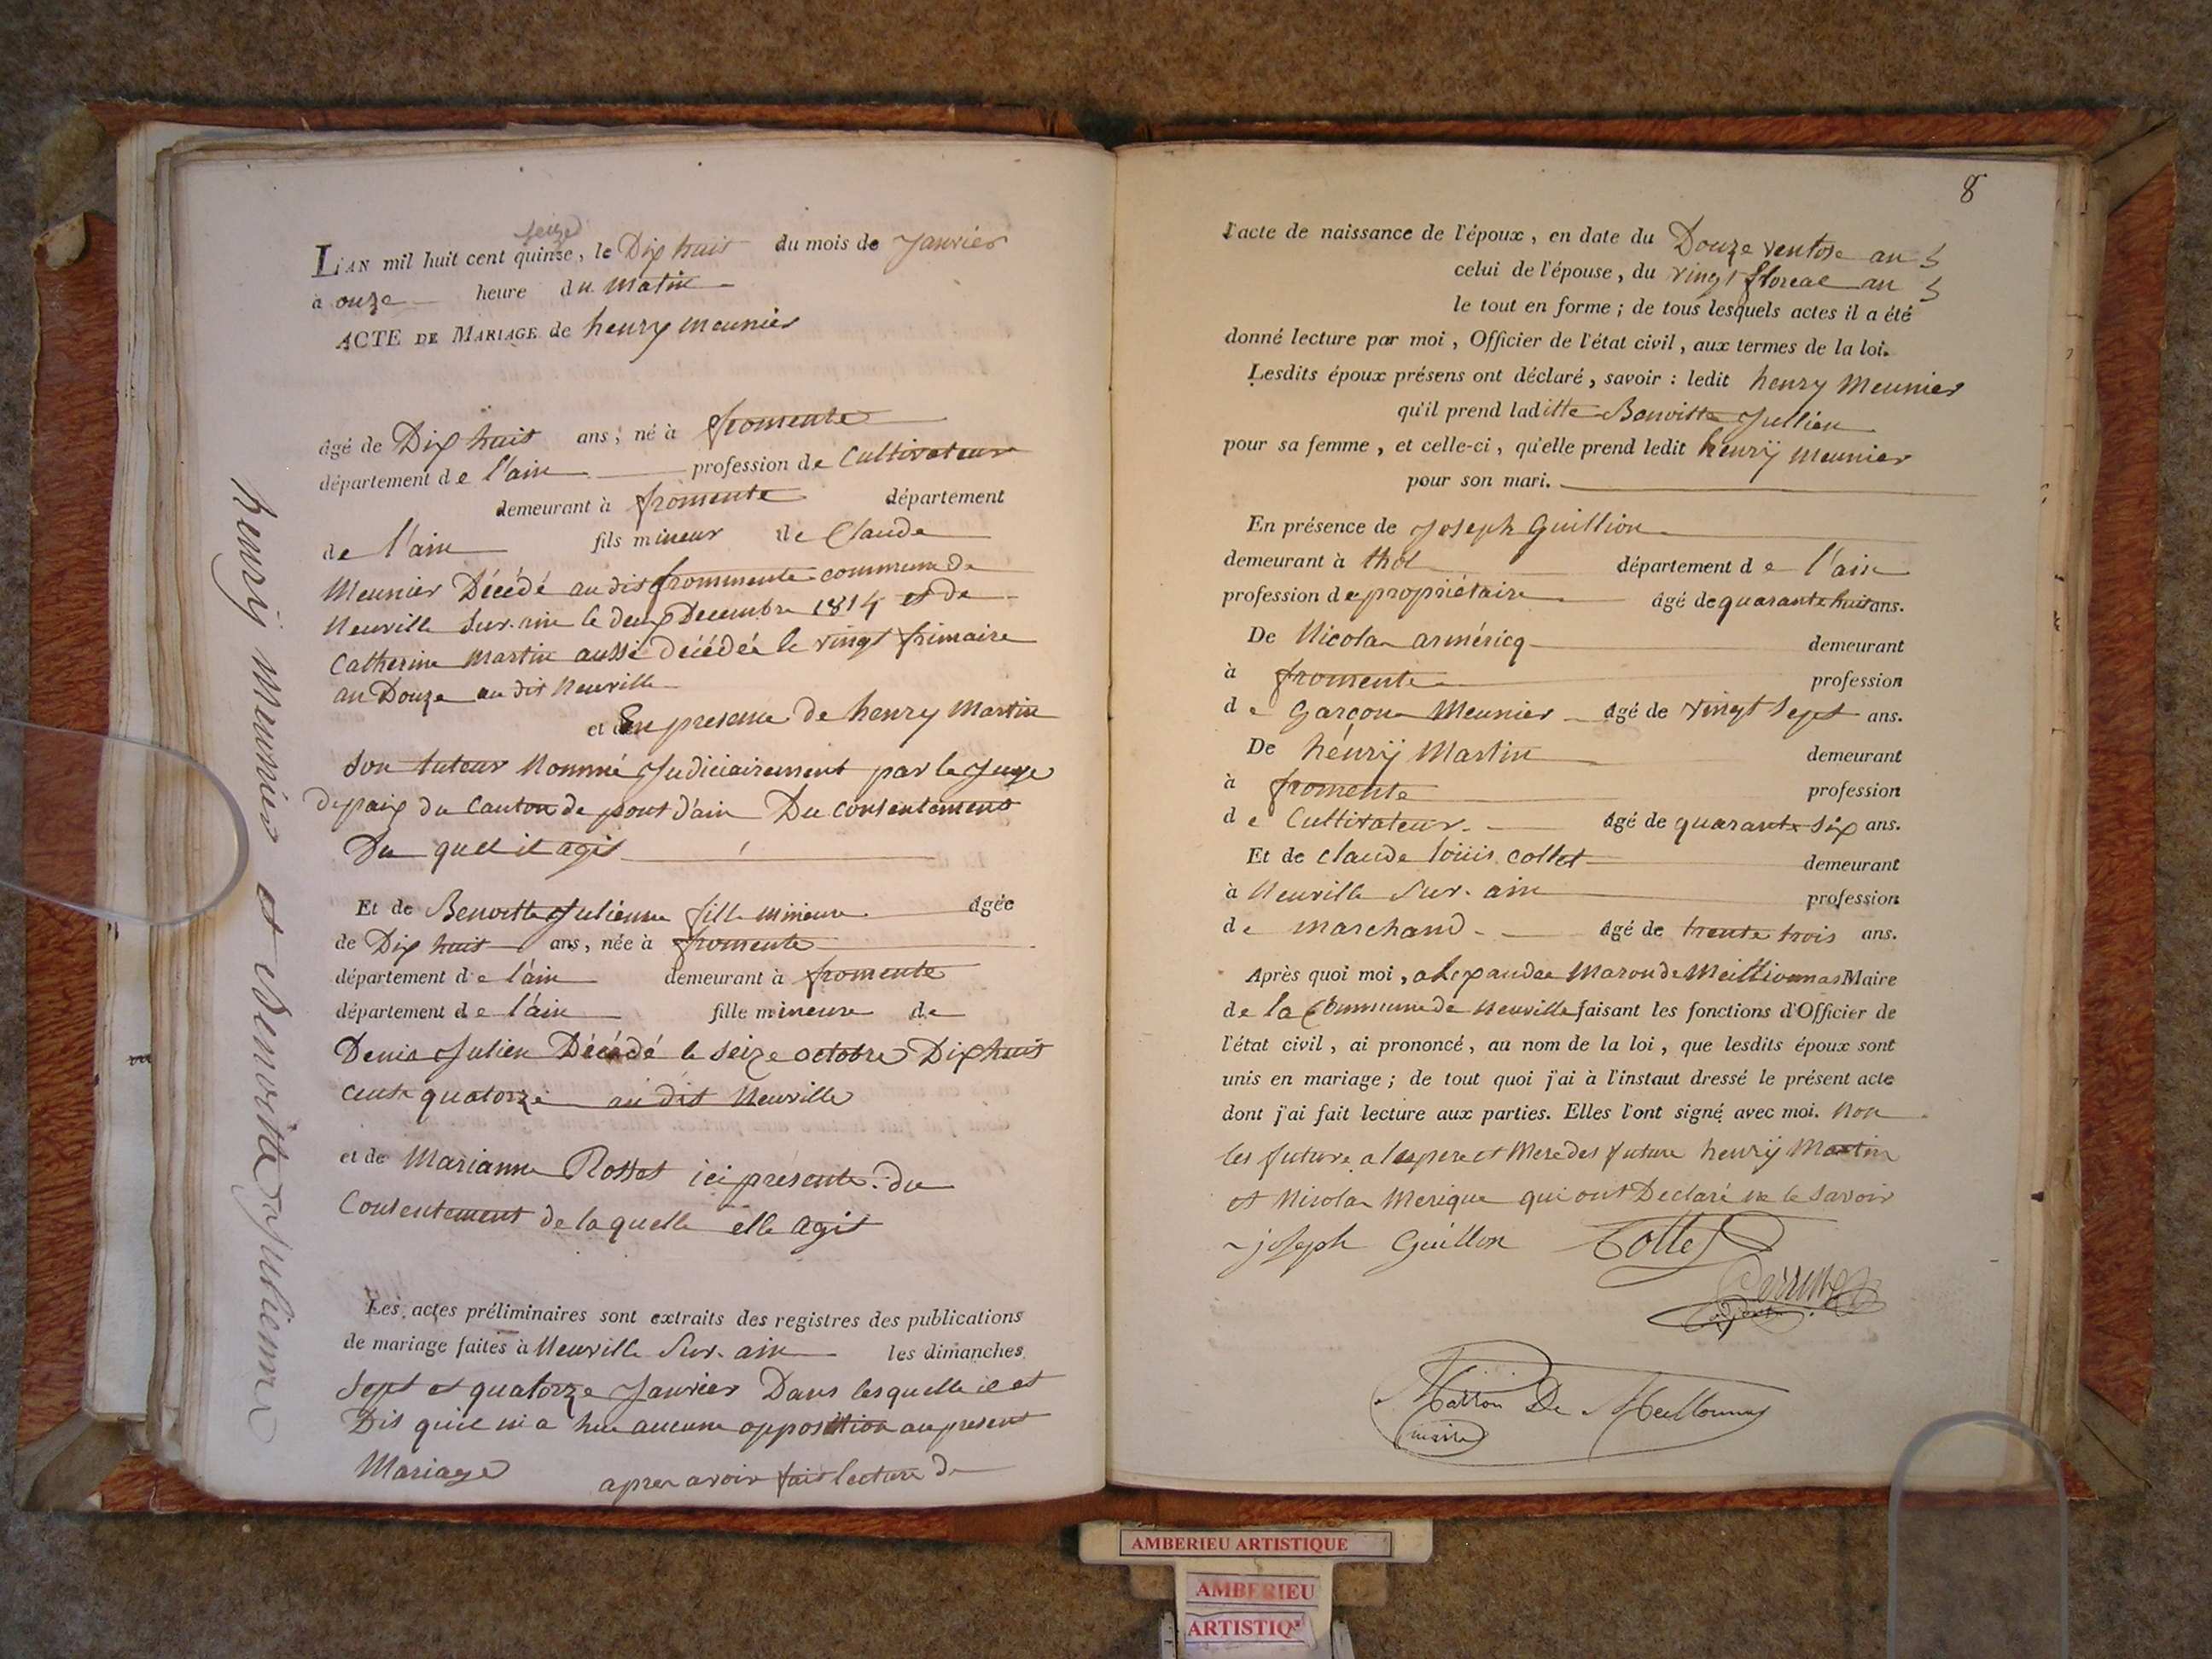 seize
L'AN mil huit cent quinze, le Dix huit du mois de Janvier
à onze heure du matin
ACTE DE MARIAGE de henry meunier
âgé de Dix huit ans, né à fromente
département de l'ain profession de Cultivateur
demeurant à fromente département
de l'ain fils mineur de Claude
Meunier Décédé au dit frommente commune de
Neuville sur ain le deux Decembre 1814 et de
Catherine Martin aussi décédée le vingt frimaire
an Douze au dit Neuville
et En presence de henry Martin
son tuteur Nommé Judiciairement par le Juge
de paix du Canton de pont d'ain Du consentement
Du quel il agit
Et de Benoitte Julienne fille mineure âgée
de Dix huit ans, née à fromente
département de l'ain demeurant à fromente
département de l'ain fille mineure de
Denis Julien Décédé le seize octobre Dix huit
cents quatorze au dit Neuville
et de Marianne Rosset ici présente. du
Consentement de laquelle elle agit
Les actes préliminaires sont extraits des registres des publications
de mariage faites à Neuville Sur. ain les dimanches
sept et quatorze Janvier Dans lesquelle il et
Dit qu'il ni a hue aucune opposition au present
Mariage apres avoir fait lecture de
henrij meunier et Benoitte Julienne
8
l'acte de naissance de l'époux, en date du Douze ventose an 5
celui de l'épouse, du vingt floreal an 5
le tout en forme ; de tous lesquels actes il a été
donné lecture par moi, Officier de l'état civil, aux termes de la loi.
Lesdits époux présens ont déclaré, savoir : ledit henry Meunier
qu'il prend laditte Benoitte Jullien
pour sa femme, et celle-ci, qu'elle prend ledit henrij meunier
pour son mari.
En présence de Joseph Guillion
demeurant à thol département de l'ain
profession de propriétaire âgé de quarante huit ans.
De Nicolas arméricq demeurant
à fromente profession
de Garçon Meunier âgé de vingt sept ans.
De henrij Martin demeurant
à fromente profession
de Cultivateur. âgé de quarante six ans.
Et de claude loüis collet demeurant
à Neuville Sur. ain profession
de marchand âgé de trente trois ans.
Après quoi moi, alexandre Maron de Meillionnas Maire
de la Commune de Neuville faisant les fonctions d'Officier de
l'état civil, ai prononcé, au nom de la loi, que lesdits époux sont
unis en mariage ; de tout quoi j'ai à l'instant dressé le présent acte
dont j'ai fait lecture aux parties. Elles l'ont signé avec moi. Non
les future pere et Mere des future henrij Martin
et Nicolas Merique qui ont Declaré ne le savoir
joseph Guillon Collet
Marron De Meillonnas
maire
AMBERIEU ARTISTIQUE
AMBERIEU
ARTISTIQ